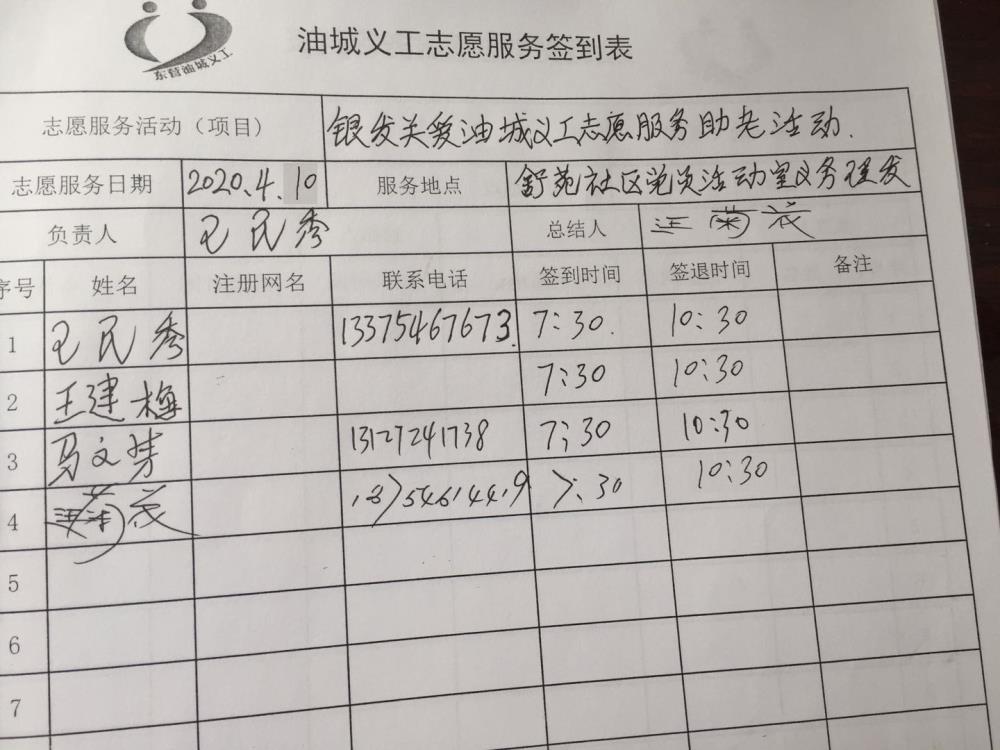 东营油城义工
油城义工志愿服务签到表
志愿服务活动（项目） 银发关爱油城义工志愿服务助老活动.
志愿服务日期 2020.4.10 服务地点 舒苑社区党员活动室义务理发
负责人 王民秀 总结人 汪菊
序号 姓名 注册网名 联系电话 签到时间 签退时间 备注
1 王民秀 13375467673. 7:30. 10:30
2 王建梅 7:30 10:30
3 马文 13127241738 7:30 10:30
4 7:30 10:30
5
6
7